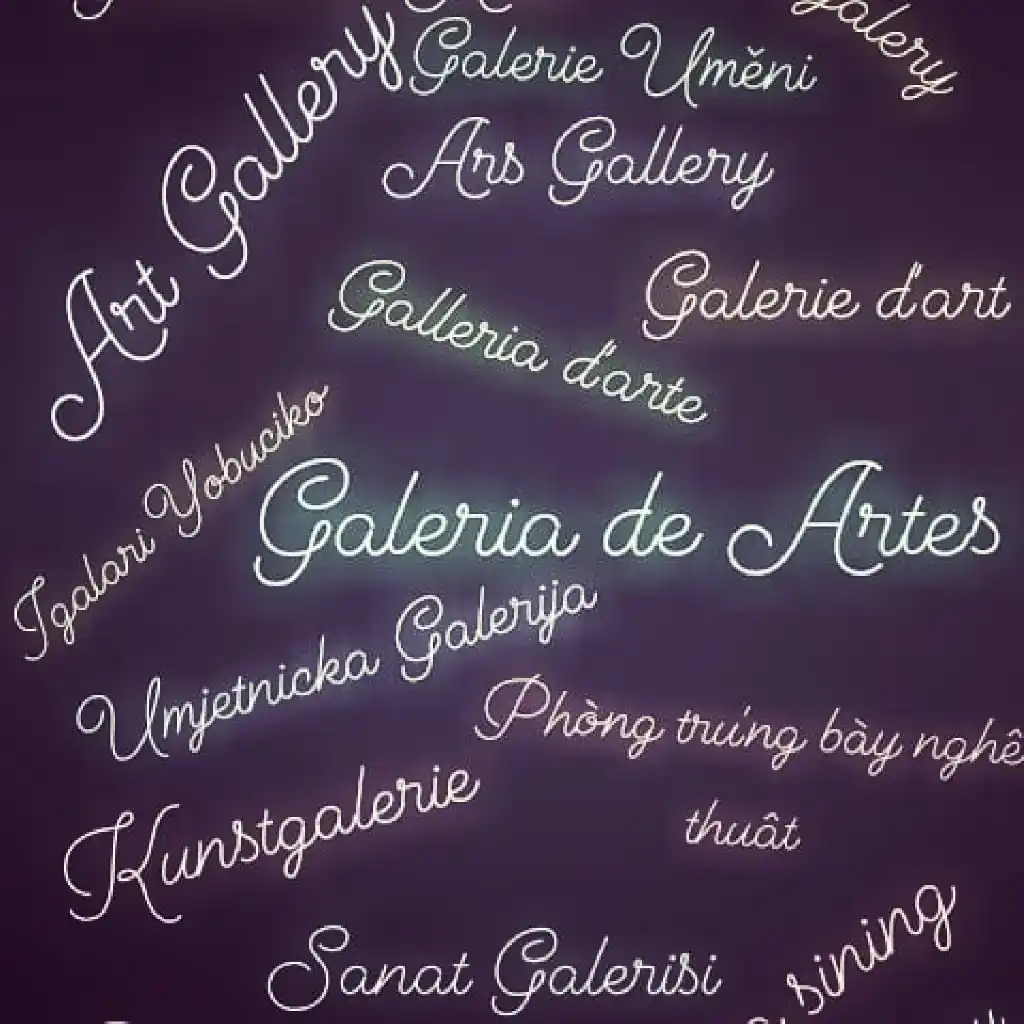 galery
Galerie Uměni
Art Gallery
Ars Gallery
Galerie d'art
Galleria d'arte
Igalari Yobuciko
Galeria de Artes
Umjetnicka Galerija
Phòng trưng bày nghê
thuât
Kunstgalerie
sining
Sanat Galerisi